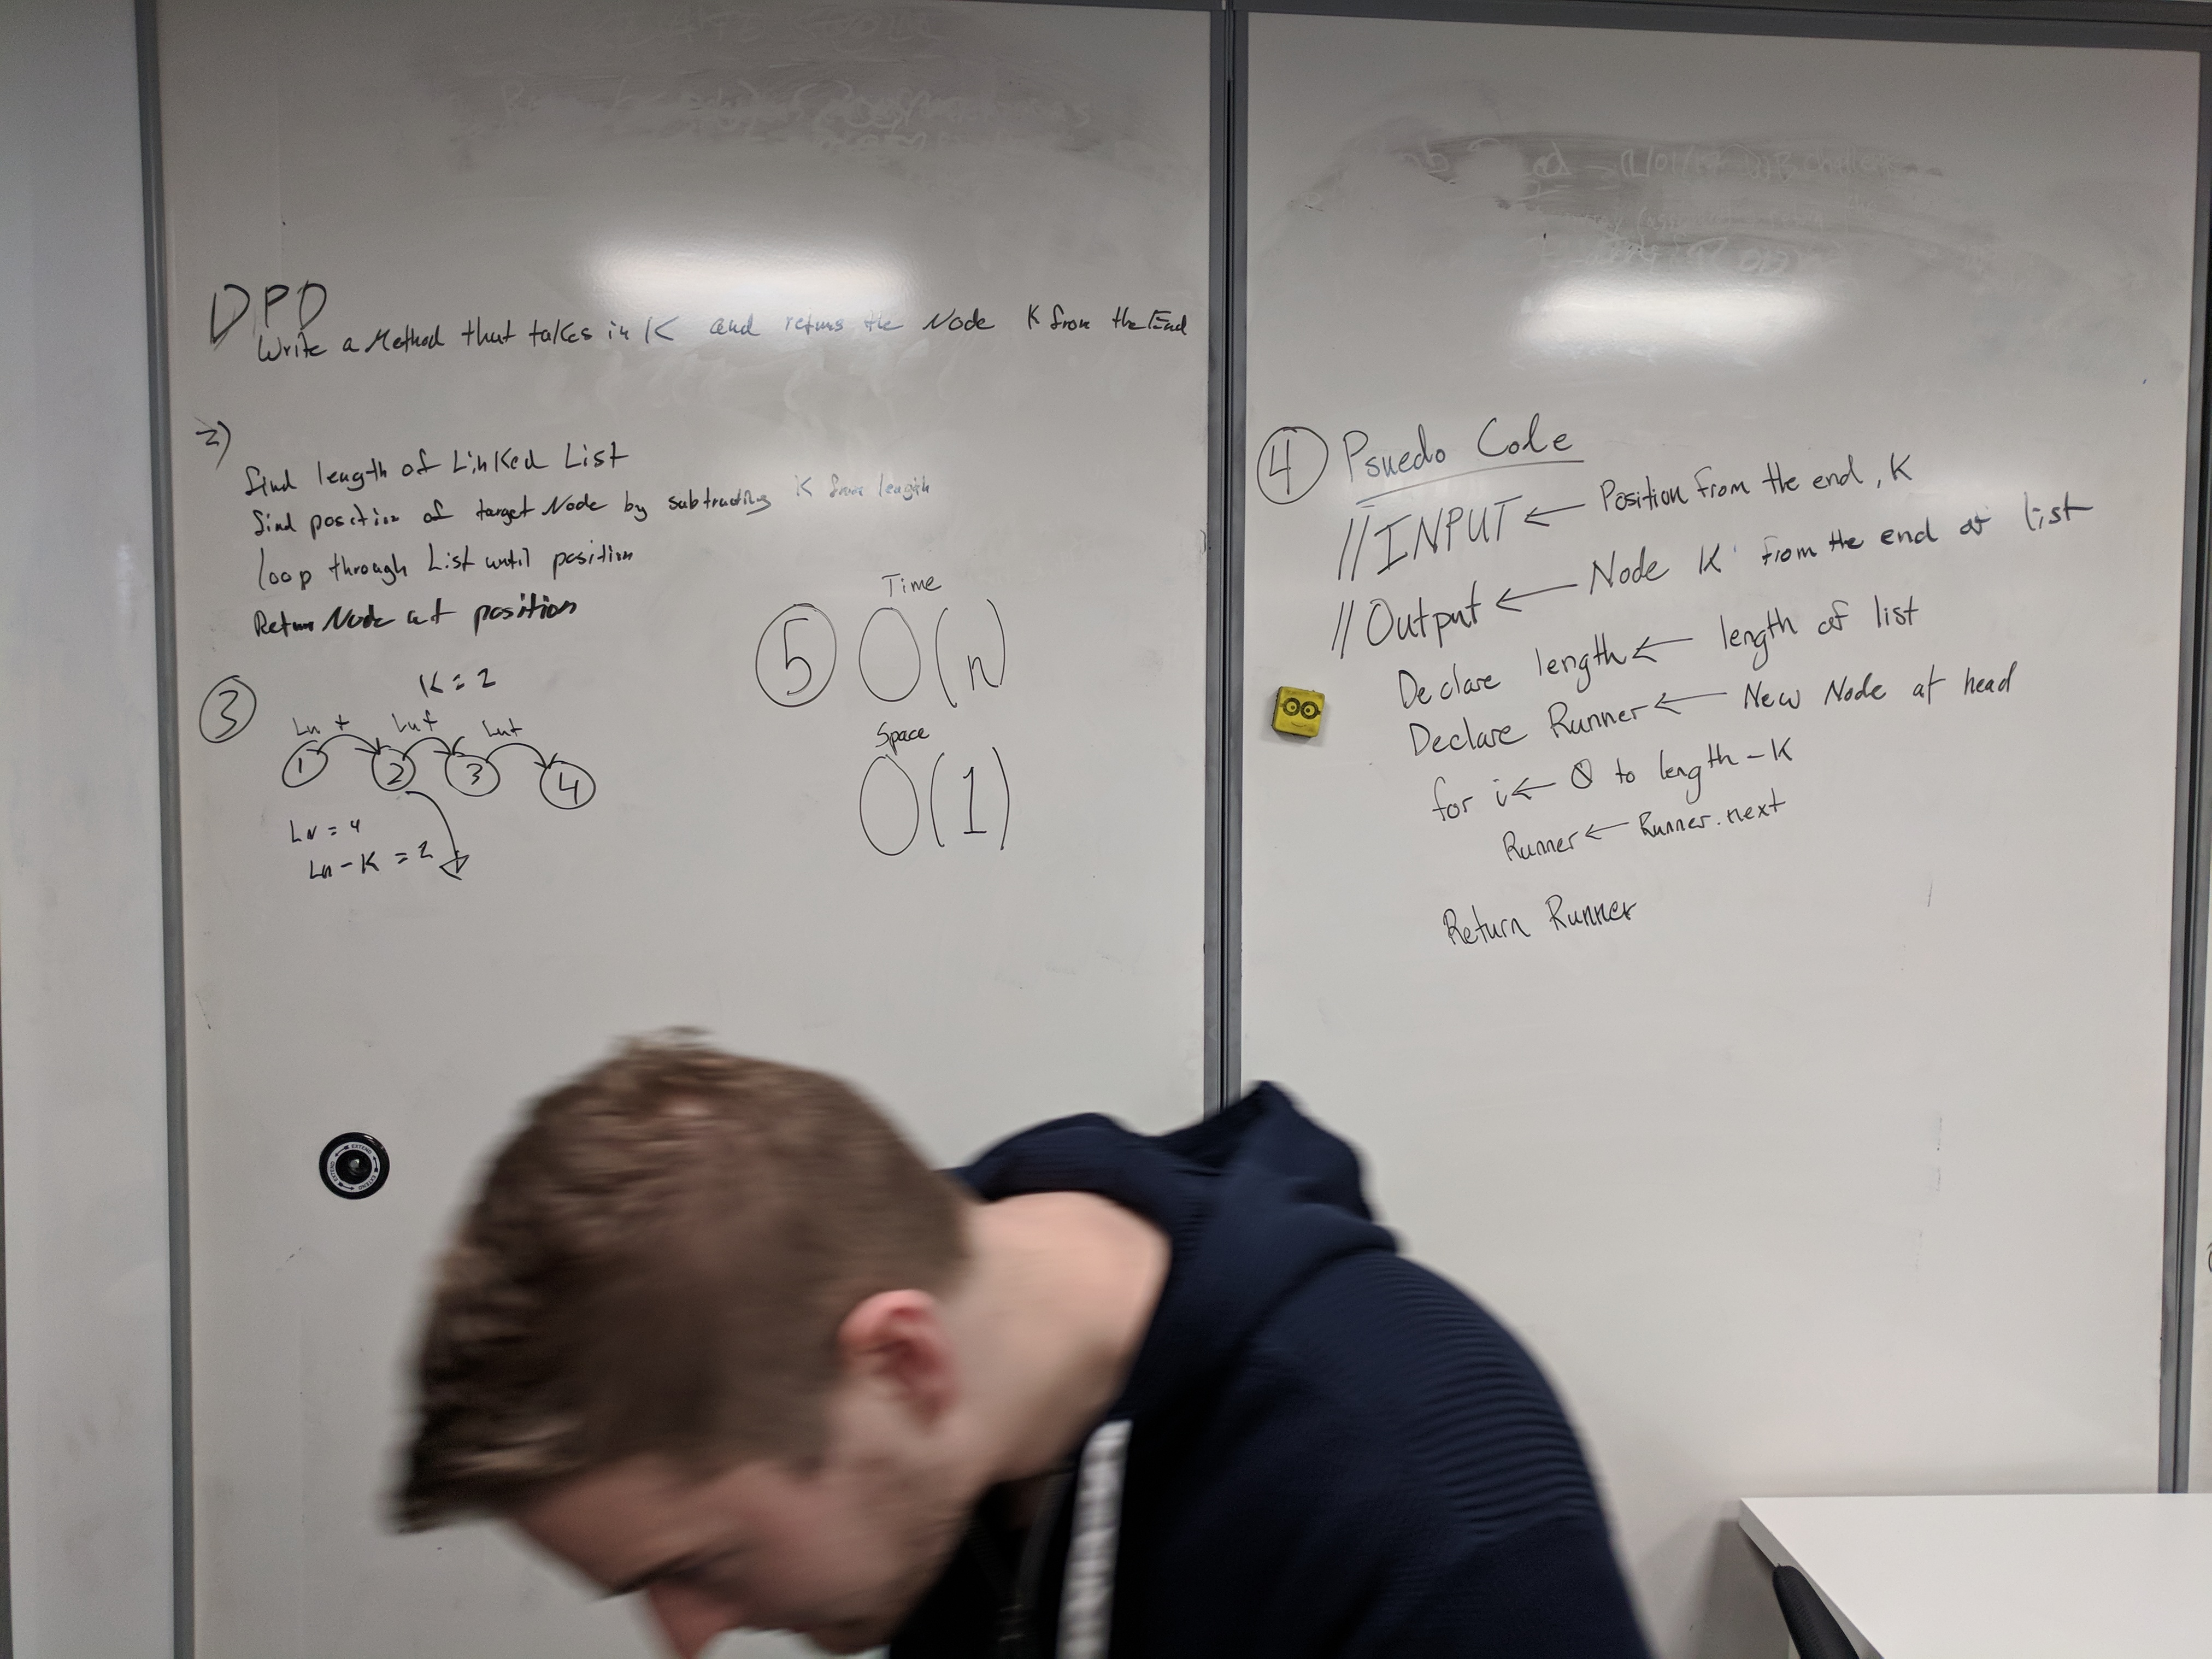 DPD
Write a Method that takes in K and retuns the Node K from the End
2)
find length of Linked List
find position of target Node by subtracting K from length
loop through List until position
Return Node at position
3
K = 2
Ln + Ln + Ln +
1 2 3 4
Ln = 4
Ln - K = 2
5
Time
O(n)
Space
O(1)
4 Psuedo Code
//INPUT ← Position from the end, K
//Output ← Node K from the end of list
Declare length ← length of list
Declare Runner ← New Node at head
for i ← 0 to length - K
Runner ← Runner.next
Return Runner
EXTEND EXTEND EXTEND